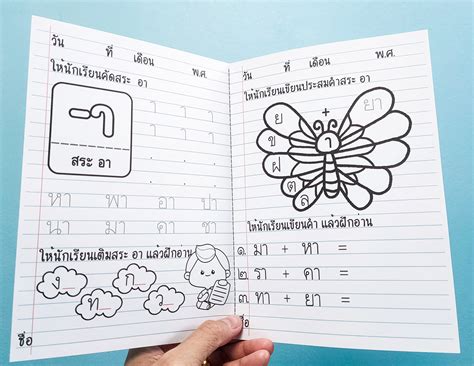 วัน ที่ เดือน พ.ศ.
ให้นักเรียนคัดสระ อา
-า า า า
สระ อา
หา พา อา ปา
นา มา คา ชา
ให้นักเรียนเติมสระ อา แล้วฝึกอ่าน
ง_ ก_
ท_ ว_
ชื่อ
วัน ที่ เดือน พ.ศ.
ให้นักเรียนเขียนประสมคำสระ อา
ย + ยา
ข า
ฝ
ต
ล
ให้นักเรียนเขียนคำ แล้วฝึกอ่าน
๑. มา + หา =
๒. รา + คา =
๓. ทา + ยา =
ชื่อ